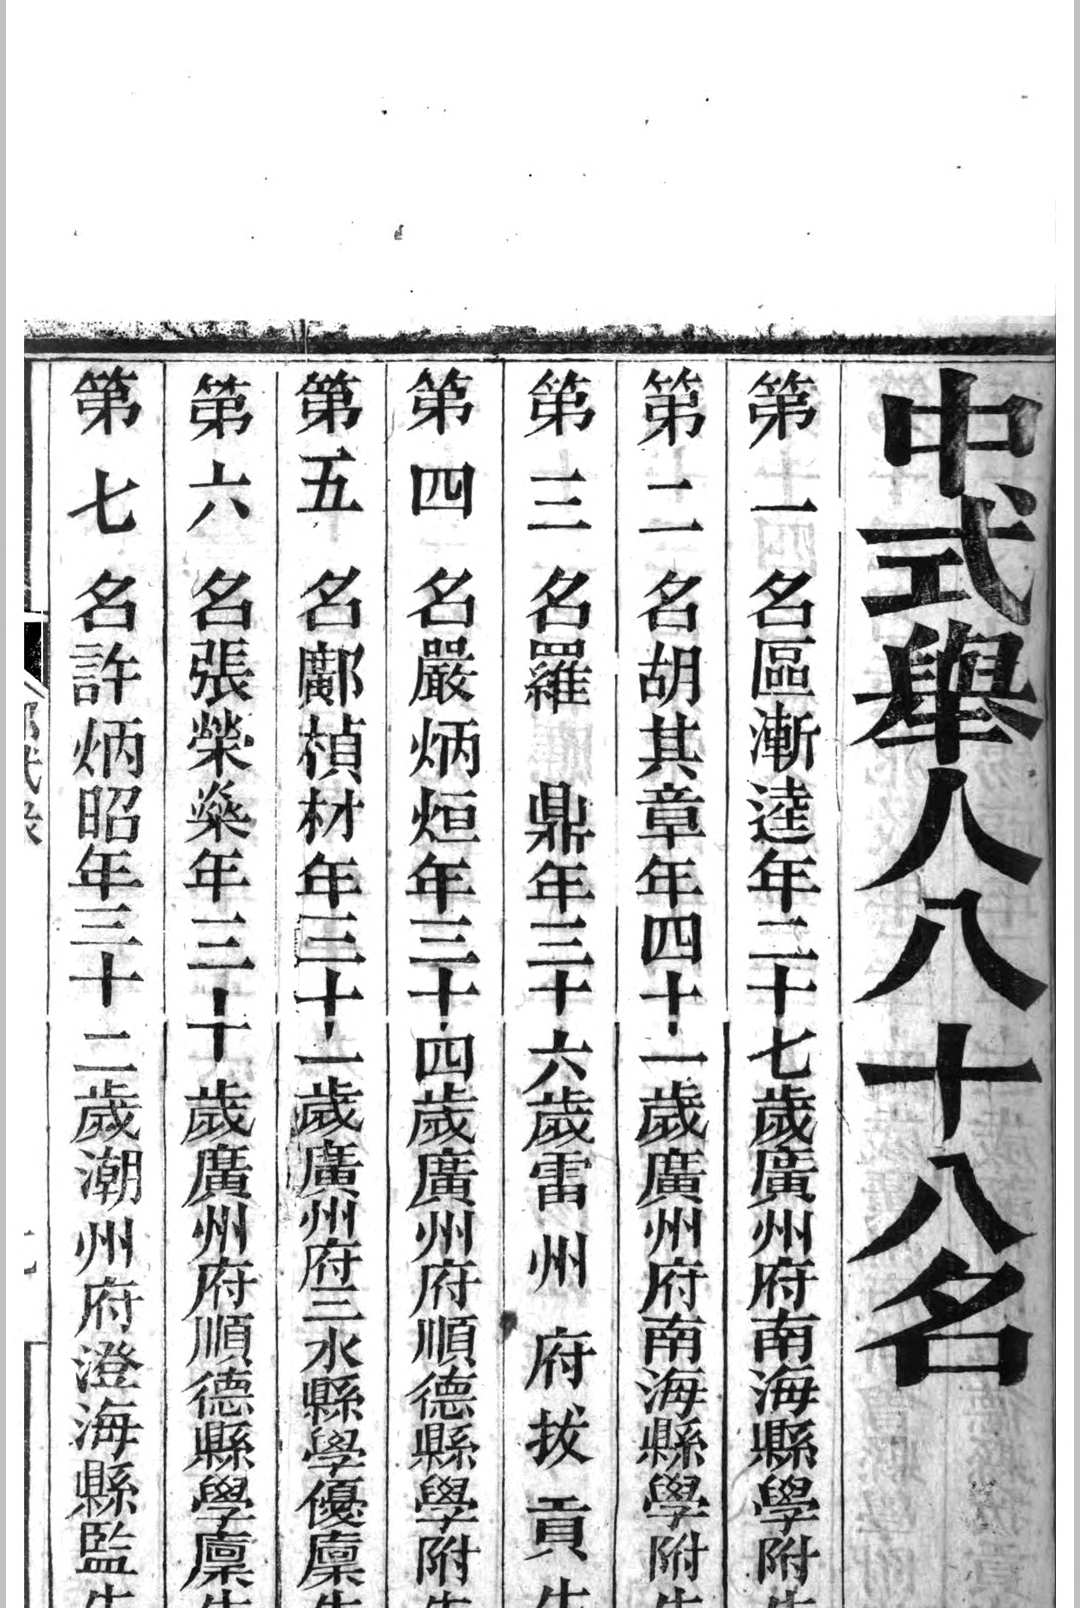 中式舉人八十八名
第一名區漸逵年二十七歲廣州府南海縣學附生
第二名胡其章年四十一歲廣州府南海縣學附生
第三名羅鼎年三十六歲雷州府拔貢生
第四名嚴炳烜年三十四歲廣州府順德縣學附生
第五名鄺楨材年三十一歲廣州府三水縣學優廩生
第六名張榮燊年三十歲廣州府順德縣學廩生
第七名許炳昭年三十二歲潮州府澄海縣監生